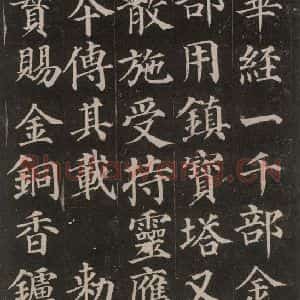 華經一千部金
部用鎮寶塔又
散施受持靈應
本傳其載敕
實賜金銅香鑪
Shufawang.CN